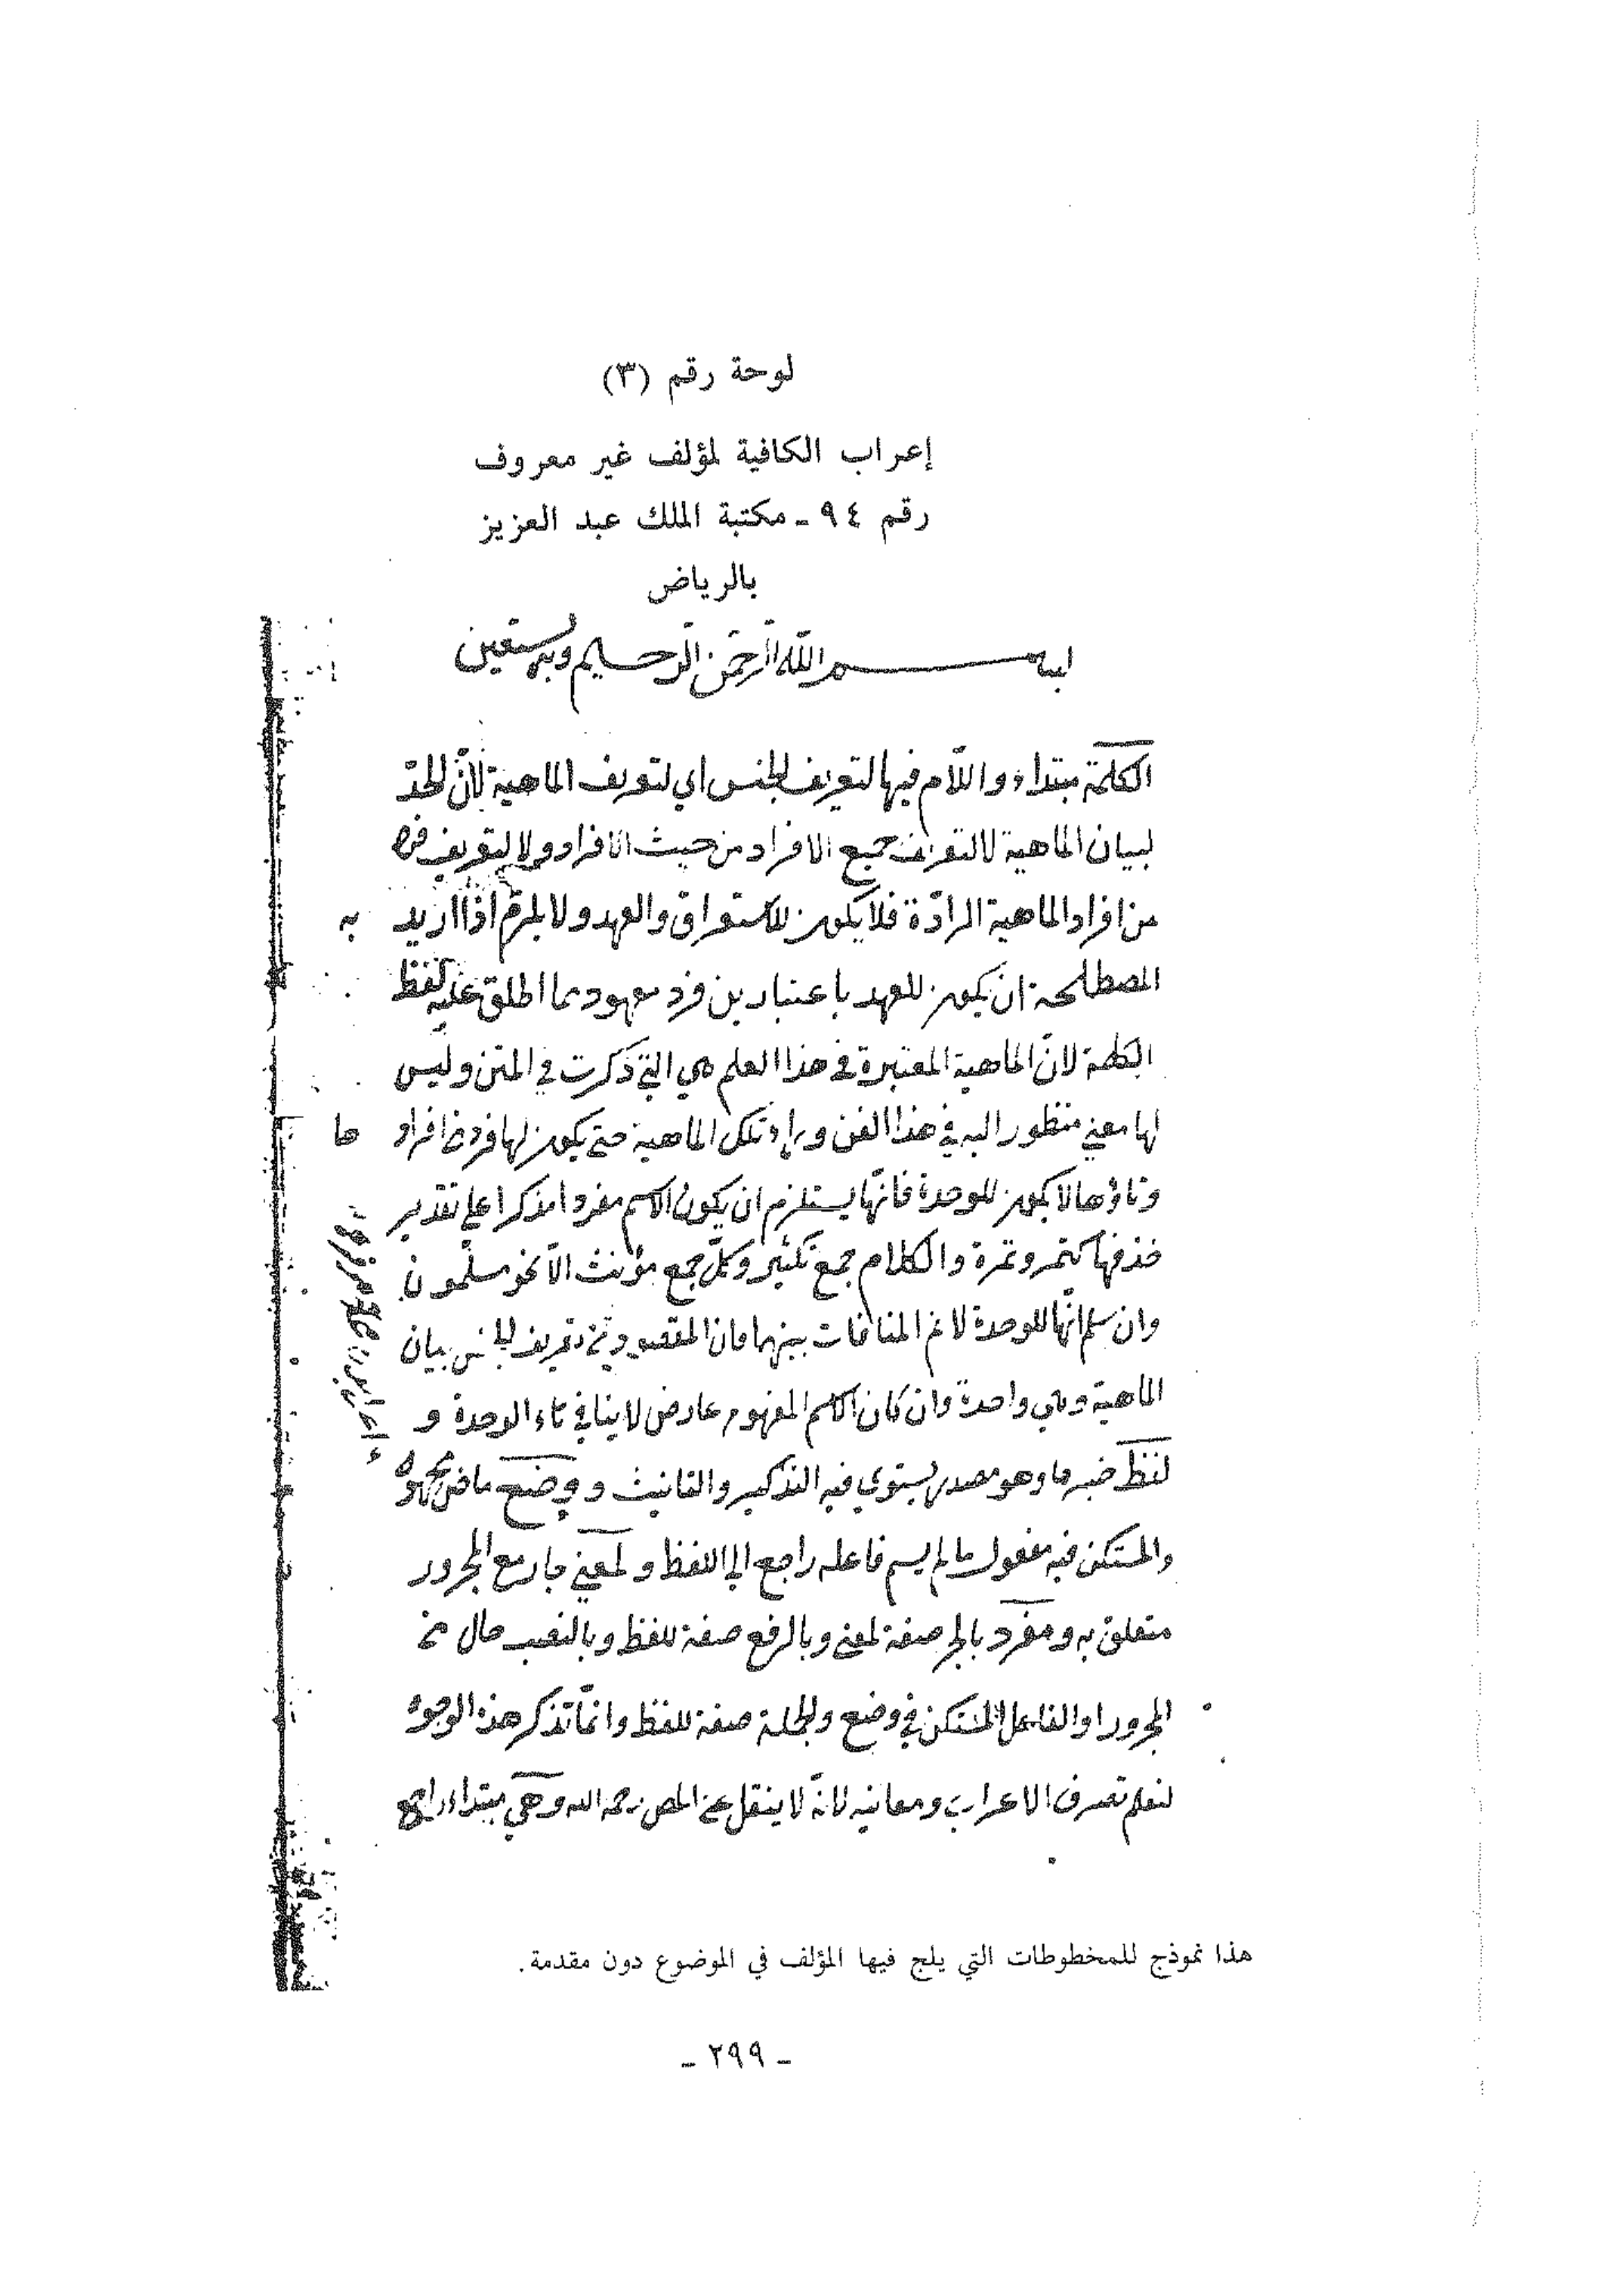 لوحة رقم (٣)
إعراب الكافية لمؤلف غير معروف
رقم ٩٤ ـ مكتبة الملك عبد العزيز
بالرياض
بسم الله الرحمن الرحيم وبه نستعين
الكلمة مبتداء واللام فيها لتعريف الجنس اي لتعريف الماهية لانّ الحدّ
لبيان الماهية لا لتعريف جميع الافراد من حيث انها افراد ولا لتعريف فرد
من افراد الماهية المرادة فلا يكون للاستغراق والعهد ولا يلزم اذا اريد به
المصطلحة ان يكون للعهد باعتبار بين فرد معهود مما اطلق عليه لفظ
الكلمة لانّ الماهية المعتبرة في هذا العلم هي التي ذكرت في المتن وليس
لها معني منظور اليه في هذا الفن وراء تلك الماهية حتى يكون لها فرد من افراد ها
وتاؤها لا يكون للوحدة فانّها يستلزم ان يكون الاسم مفردا مذكرا على تقدير
حذفها كتمر وتمرة والكلام جمع تكثير وكلّ جمع مؤنث الاّ نحو مسلمون
وان سلم انّها للوحدة لا نم المنافات بينهما فان المقصود من تعريف الجنس بيان
الماهية وهي واحدة وان كان الاسم المفهوم عارض لا ينافي تاء الوحدة و
لفظ خبرها وهو مصدر يستوي فيه التذكير والتانيث و وضع ماض مجهول
والمستكن فيه مفعول ما لم يسم فاعله راجع الى اللفظ و لمعني جار مع المجرور
متعلق به و مفرد بالجر صفة لمعني وبالرفع صفة للفظ وبالنصب حال من
المجرور او الفاعل المستكن في وضع والجملة صفة للفظ وانّما تذكر هذه الوجوه
لتعلم تصرف الاعراب ومعانيه لانّه لا ينقل عن المص رحمه الله وهي مبتداء راجع
هذا نموذج للمخطوطات التي يلج فيها المؤلف في الموضوع دون مقدمة.
ـ ٢٩٩ ـ